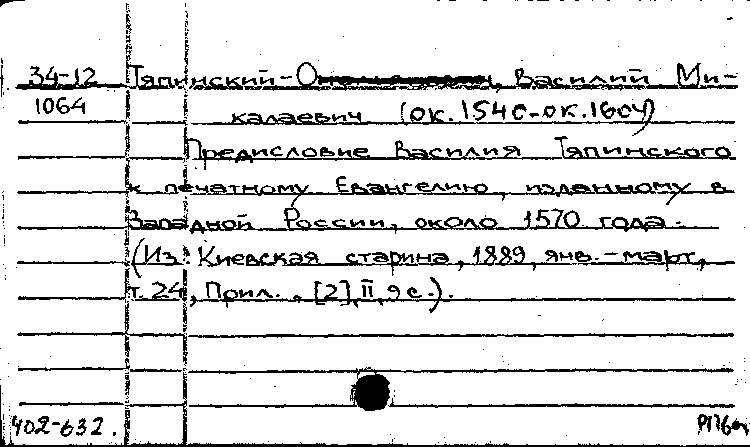 34-12 Тяпинский-О, Василий Ми-
1064 калаевич (ок.1540-ок.1604)
Предисловие Василия Тяпинского
к печатному Евангелию, изданному в
Западной России, около 1570 года.
(Из: Киевская старина, 1889, янв.-март,
т. 24, Прил., [2], II, 9 с.).
402-632.